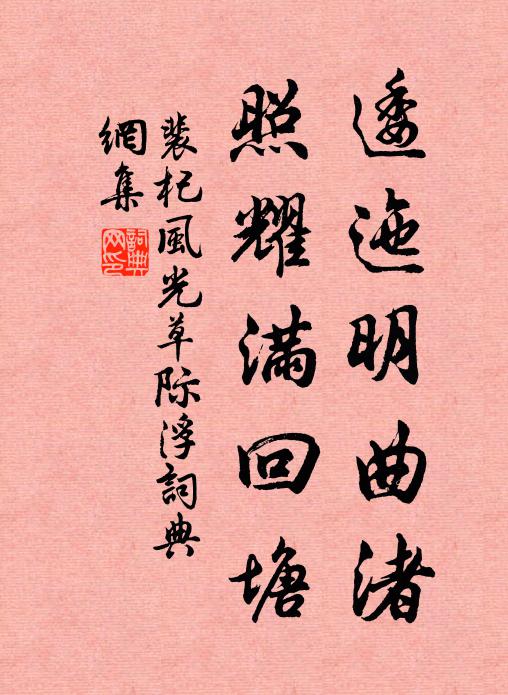 逶迤明曲渚
照耀满回塘
裴杞風光草际浮詞典
網集
詞典網印